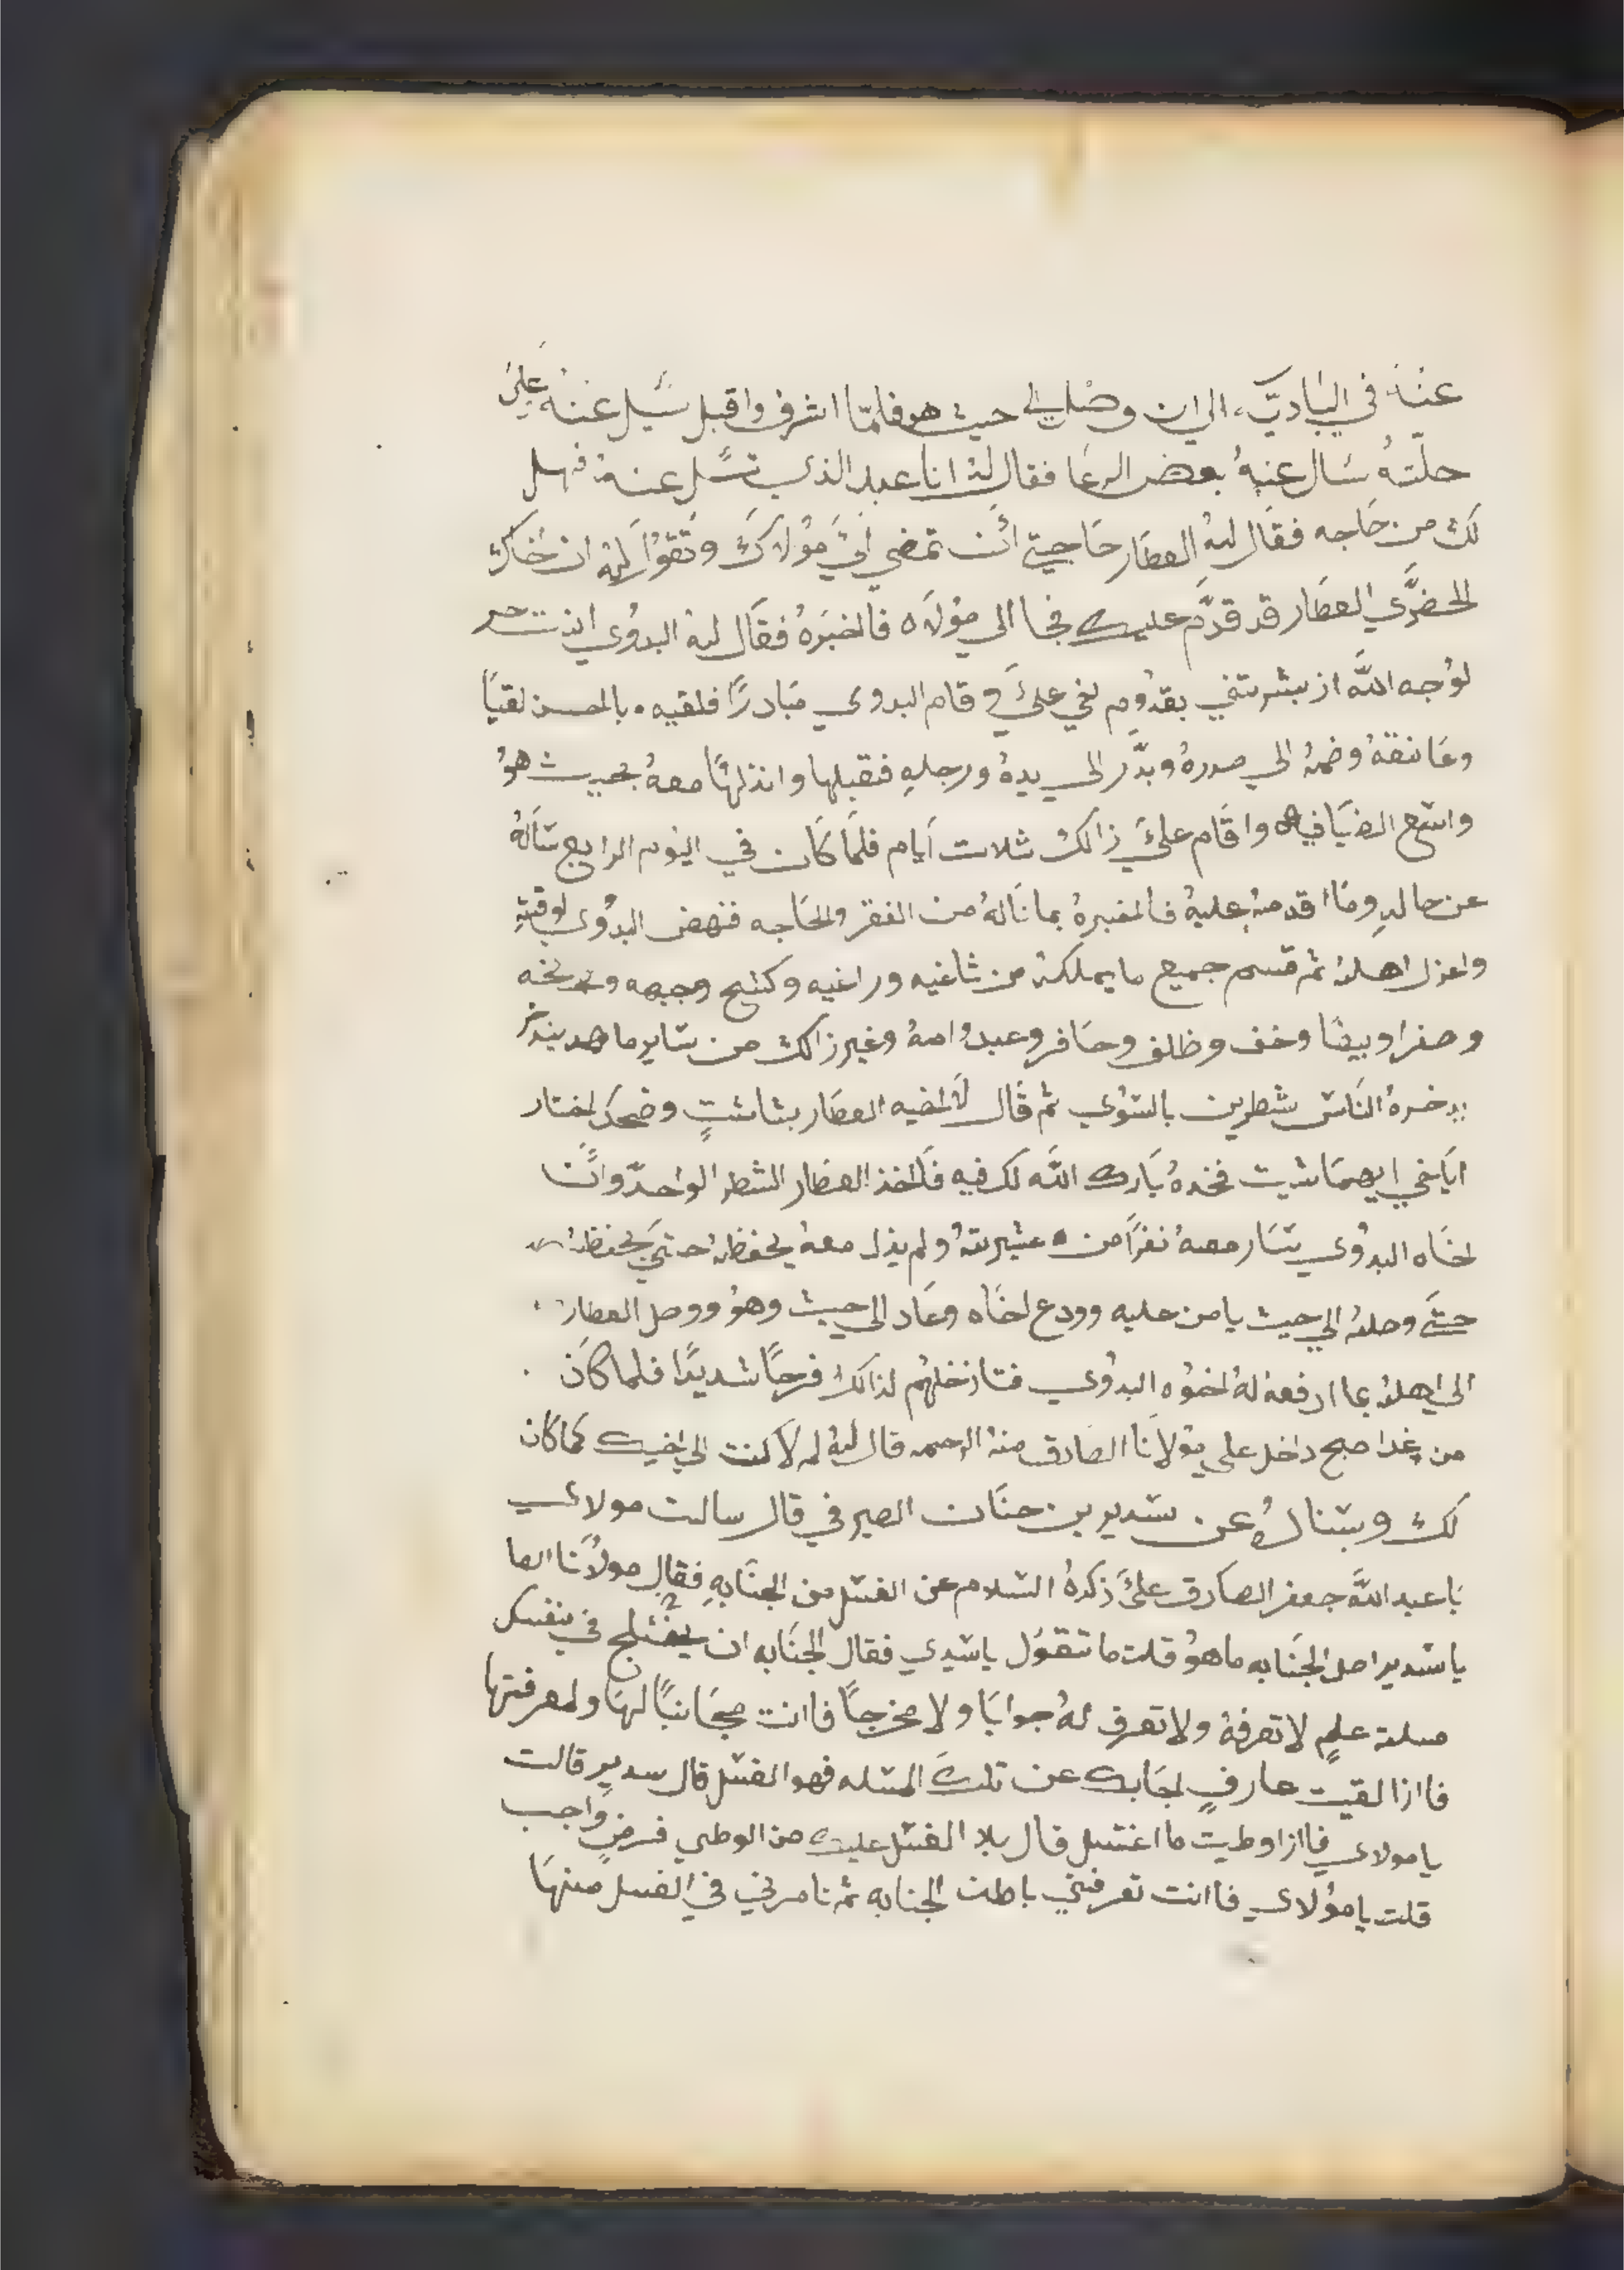 عنهُ في البَاديَّه الي ان وصْل الي حيث هو فلمّا اشرف واقبل سَيل عنهُ علىَ
حلّتهُ سَال عنهُ بعض الرعَا فقال لهُ انا عبد الذي تسَل عنهُ فهل
لكَ من حَاجه فقَال لهُ العطَار حَاجتي ائَنت تمضي اليَ مَوُلاركَ وتَقوُلَ لهُ ان خَاك
الحضرَّي العطَار قد قدَّم عليك فجا الي موُلاه فاخبَرهُ فقَال لهُ البدوُي انت حر
لوُجه اللَّه از بشرتني بقدُوم اخي عليَ وقام البدوي مبَادرًا فلقيه بالحسن لقيَا
وعَانقهُ وضمهُ الي صدرهُ وبدَّر الي يدهُ ورجلهِ فقبلها وانذلهَا معهُ بحيث هوُ
واتسَع الضيَافه واقَام عليَ ذالكُ ثلات اَيام فلمَا كَان في اليَوم الرابع سَالهُ
عن حالهِ ومَا اقدمهُ عليهُ فاخبرهُ بما نَالهُ من الفقر والحَاجه فنهض البدوُي لوقتهِ
واعزل اهلهُ ثم قسم جميع ما يملكهُ من ثاغيه وراغيه وكبَح وجبهه ونخه
وصفرا وبيضَا وخف وظلف وحَافر وعبدُ وامهُ وغير زالكَ من سَاير ما
يدخرهُ النَاس شطرين بالسَوُي ثم قَال لَاخيه العطَار بشاشتٍ وضحك اختار
ايَاخي ايهمَا شيت فخدهُ بَارك اللَّه لك فيه فَلاخذ العطَار الشطر الواحدّ وانًَّ
اخَاه البدوُي سَار معهُ نفرًا من عشيرتهُ ولم يذل معهُ يحفظهُ حتيَ يحفظهُ
حتيَ وصلهُ الي حيث يامن عليه وودع اخَاه وعَاد الي حيث وهوُ ووصل العطار
الي اهلهُ بما ارفعهُ لهُ اخوُه البدوُي فتا زخلهُم لذالكُ فرحًا شديدًا فلما كَان
من غدا صبح داخل علي موُلانَا الصَادق منهُ الرحمه قال لهُ لم لا كنت الي اخيك كمَا كَان
لكَ وسَنالهُ عن سَدير بن حنَان الصيرفي قال سالت مولاي
بَا عبد اللَّه جعفر الصادق عليَ ذكرهُ السَلام عن الغسَل من الجنَابهِ فقال مولانَا الصا
يا سَدير اصل الجنَابه ما هوُ قلت ما تقوَل يا سَيدي فقال الجنَابه ان يختلج في نفسك
مسلة علمٍ لا تعرفهُ ولا تعرف لهُ جوابَا ولا مخرجاً فاانت مجَانبًا لهَا ولمعرفتها
فاازا لقيت عارفٍ اجَابك عن تلكَ المسَله فهو الغسَل قال سدير قالت
يا مولاي فاازا وطيت ما اغتسل قال بلا الغسَل عليك من الوطي فرضٍ وَاجب
قلت يا موُلاي فاانت تعرفني باطن الجنابه ثم تامرني في الغسل منهَا